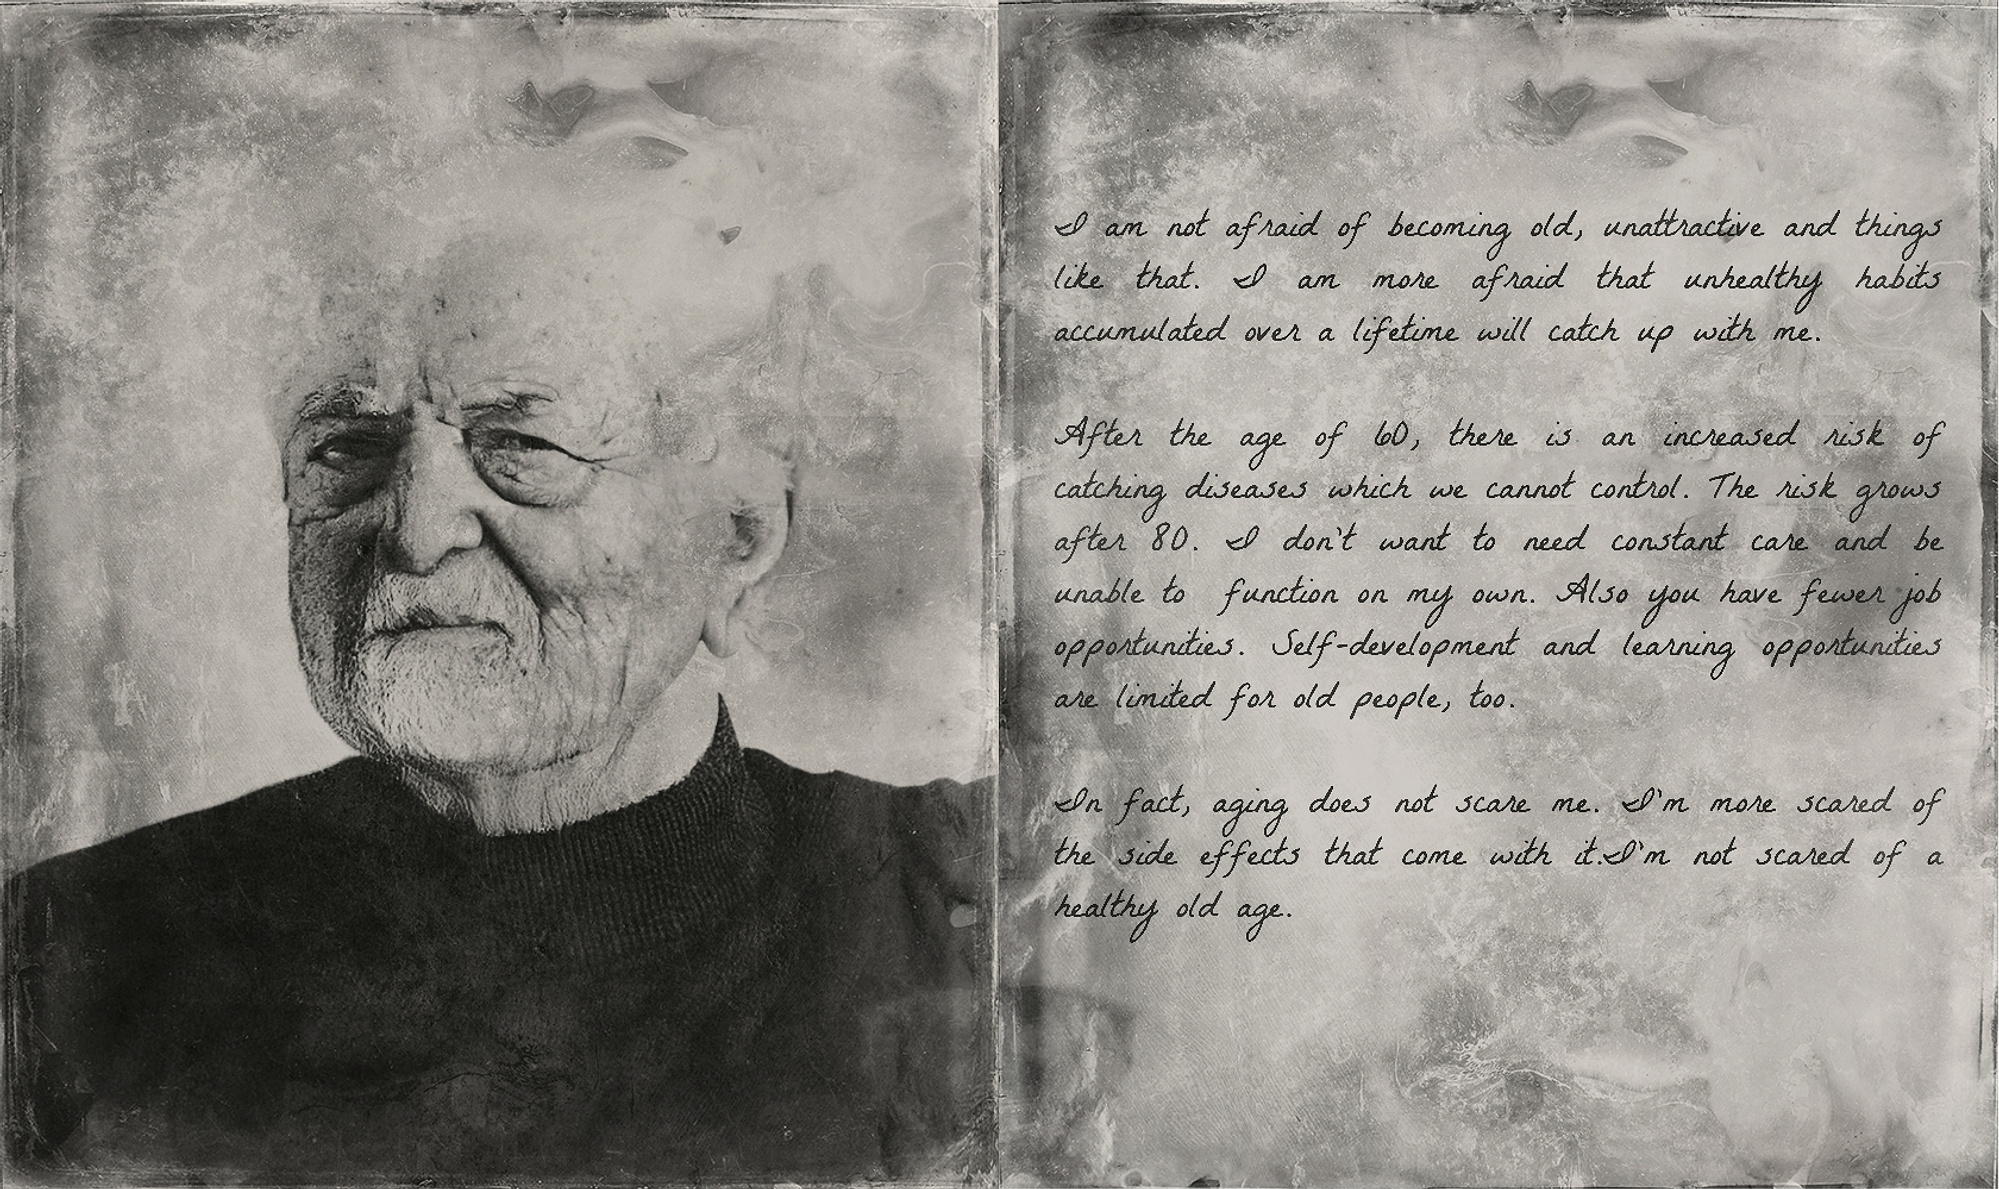 I am not afraid of becoming old, unattractive and things
like that. I am more afraid that unhealthy habits
accumulated over a lifetime will catch up with me.
After the age of 60, there is an increased risk of
catching diseases which we cannot control. The risk grows
after 80. I don't want to need constant care and be
unable to function on my own. Also you have fewer job
opportunities. Self-development and learning opportunities
are limited for old people, too.
In fact, aging does not scare me. I'm more scared of
the side effects that come with it.I'm not scared of a
healthy old age.